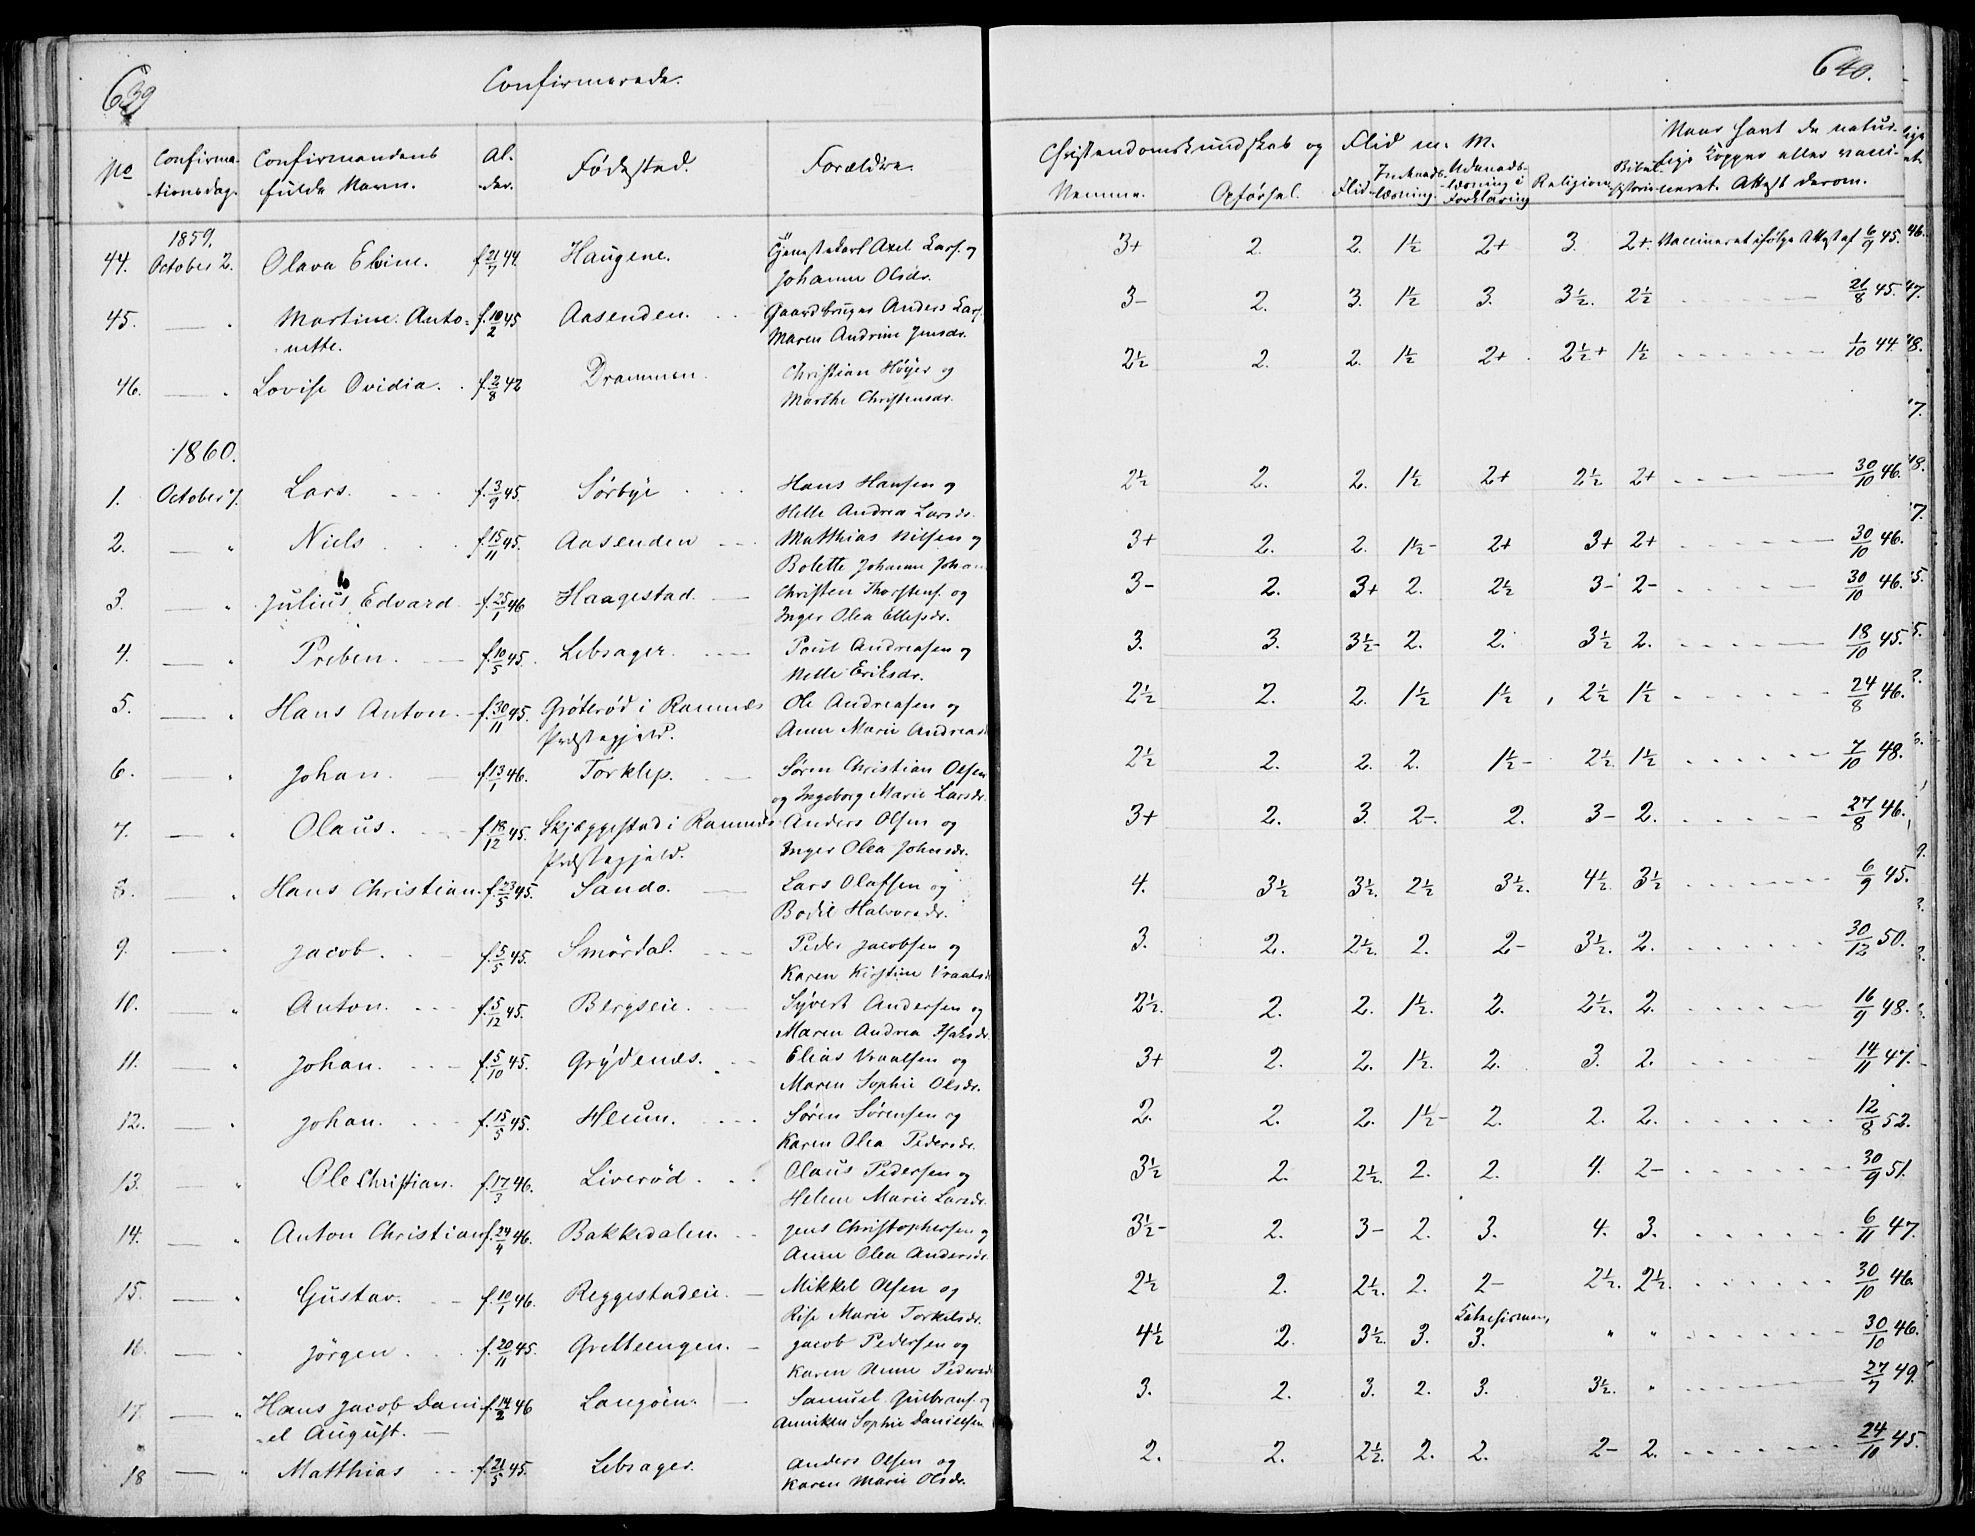 639
Confirmerede.
No Confirmationsdag. Confirmandens fulde Navn. Alder. Fødested. Forældre.
1859.
44. October 2. Olava Elvine. f. 21/7 44. Haugene. Axel Lars. og
Johanne Olsdr.
45. — " Martine Anto- f. 10/2 45 Aasenden. Gaardbruger Anders Lars.
nette. Maren Andrine Jensdr.
46. — " Lovise Ovidia. f. 2/8 42 Drammen. Christian Høyer og
Marthe Christensdr.
1860.
1. October 7. Lars. f. 3/9 45. Sørbye Hans Hansen og
Helle Andrea Larsdr.
2. — " Niels f. 15/11 45. Aasenden Matthias Nilsen og
Bolette Johanne Johan
3. — " Julius Edvard f. 25/1 46 Haagestad Christen Thorstens. og
Inger Olea Ellefsdr.
4. — " Preben. f. 10/5 45. Lebsager Poul Andreasen og
Nelle Eriksdr.
5. — " Hans Anton. f. 30/11 45. Grøterød i Ramnes Ole Andreasen og
Præstegjeld. Anne Marie Andreasd
6. — " Johan. f. 13/1 46. Torklep. Søren Christian Olsen
og Ingeborg Marie Larsdr.
7. — " Olaus. f. 18/12 45. Skjæggestad i Ramnes Anders Olsen og
Præstegjeld. Inger Olea Johnsdr.
8. — " Hans Christian. f. 23/5 45. Sando. Lars Olafsen og
Bodil Halvorsdr.
9. — " Jacob. f. 5/5 45. Smørdal. Peder Jacobsen og
Karen Kirstine Vraalsd
10. — " Anton. f. 5/12 45. Bergseie. Syvert Andersen og
Maren Andrea Isaksdr.
11. — " Johan. f. 5/10 45. Grydenæs. Elias Vraalsen og
Maren Sophie Olsdr.
12. — " Johan. f. 15/5 45. Heum. Søren Sørensen og
Karen Olea Pedersdr.
13. — " Ole Christian. f. 17/3 46. Liverød. Olaus Pedersen og
Helene Marie Larsdr.
14. — " Anton Christian f. 24/4 46. Bakkedalen. Jens Christophersen og
Anne Olea Andersdr.
15. — " Gustav. f. 10/1 46. Reggestadeie. Mikkel Olsen og
Rise Marie Torkelsdr.
16. — " Jørgen. f. 20/11 45. Gretteengen. Jacob Pedersen og
Karen Anne Pedersd
17. — " Hans Jacob Dani- f. 14/2 46 Langøen. Samuel Gulbrans. og
el August. Anniken Sophie Danielsen
18 — " Matthias f. 21/5 45. Lebsager. Anders Olsen og
Karen Marie Olsdr.
640.
Christendomskundskab og Flid m. M. Naar havt de natur-
lige Kopper eller vacci-
neret. Attest derom.
Nemme. Opførsel. Flid Indenads-læsning. Udenads-læsning i Forklaring Religion Bibelhistorie
3+ 2. 2. 1½ 2+ 3. 2+. Vaccineret ifølge Attest af 6/9 45.
3- 2. 3. 1½ 3. 3½. 2½ 21/8 45.
2½ 2. 2. 1½ 2+ 2½+ 1½ 1/10 44.
2½ 2. 2. 1½ 2+ 2½ 2+ 30/10 46.
3+ 2. 2. 1½- 2+ 3+ 2+ 30/10 46.
3- 2. 3+ 2. 2½ 3- 2- 30/10 46.
3. 3. 3½- 2. 2. 3½ 2. 18/10 45.
2½ 2. 2. 1½ 1½ 2½ 1½ 24/8 46.
2½ 2. 2. 2. 1½- 2½. 1½ 7/10 48.
3+ 2. 3. 2-. 2. 3- 2. 27/8 46.
4. 3½ 3½. 2½ 3½. 4½. 3½ 6/9 45.
3. 2. 2½. 2. 2- 3½. 2. 30/12 50.
2½. 2. 2. 1½. 2. 2½. 2. 16/9 48.
3+ 2. 2. 1½. 2. 3. 2. 14/11 47.
2. 2. 2. 1½- 2. 2. 2. 12/8 52.
3½ 2. 2½. 2. 2. 4. 2- 30/9 51.
3½- 2. 3- 2. 3. 4. 3. 6/11 47.
2½ 2. 2½. 2. 2- 2½. 2½. 30/10 46.
4½ 2. 3½. 3. 3. " " 30/10 46.
3. 2. 3. 2. 3. 3½. " 27/7 49.
2. 2. 2½. 2. 2. 2- 2. 24/10 45.